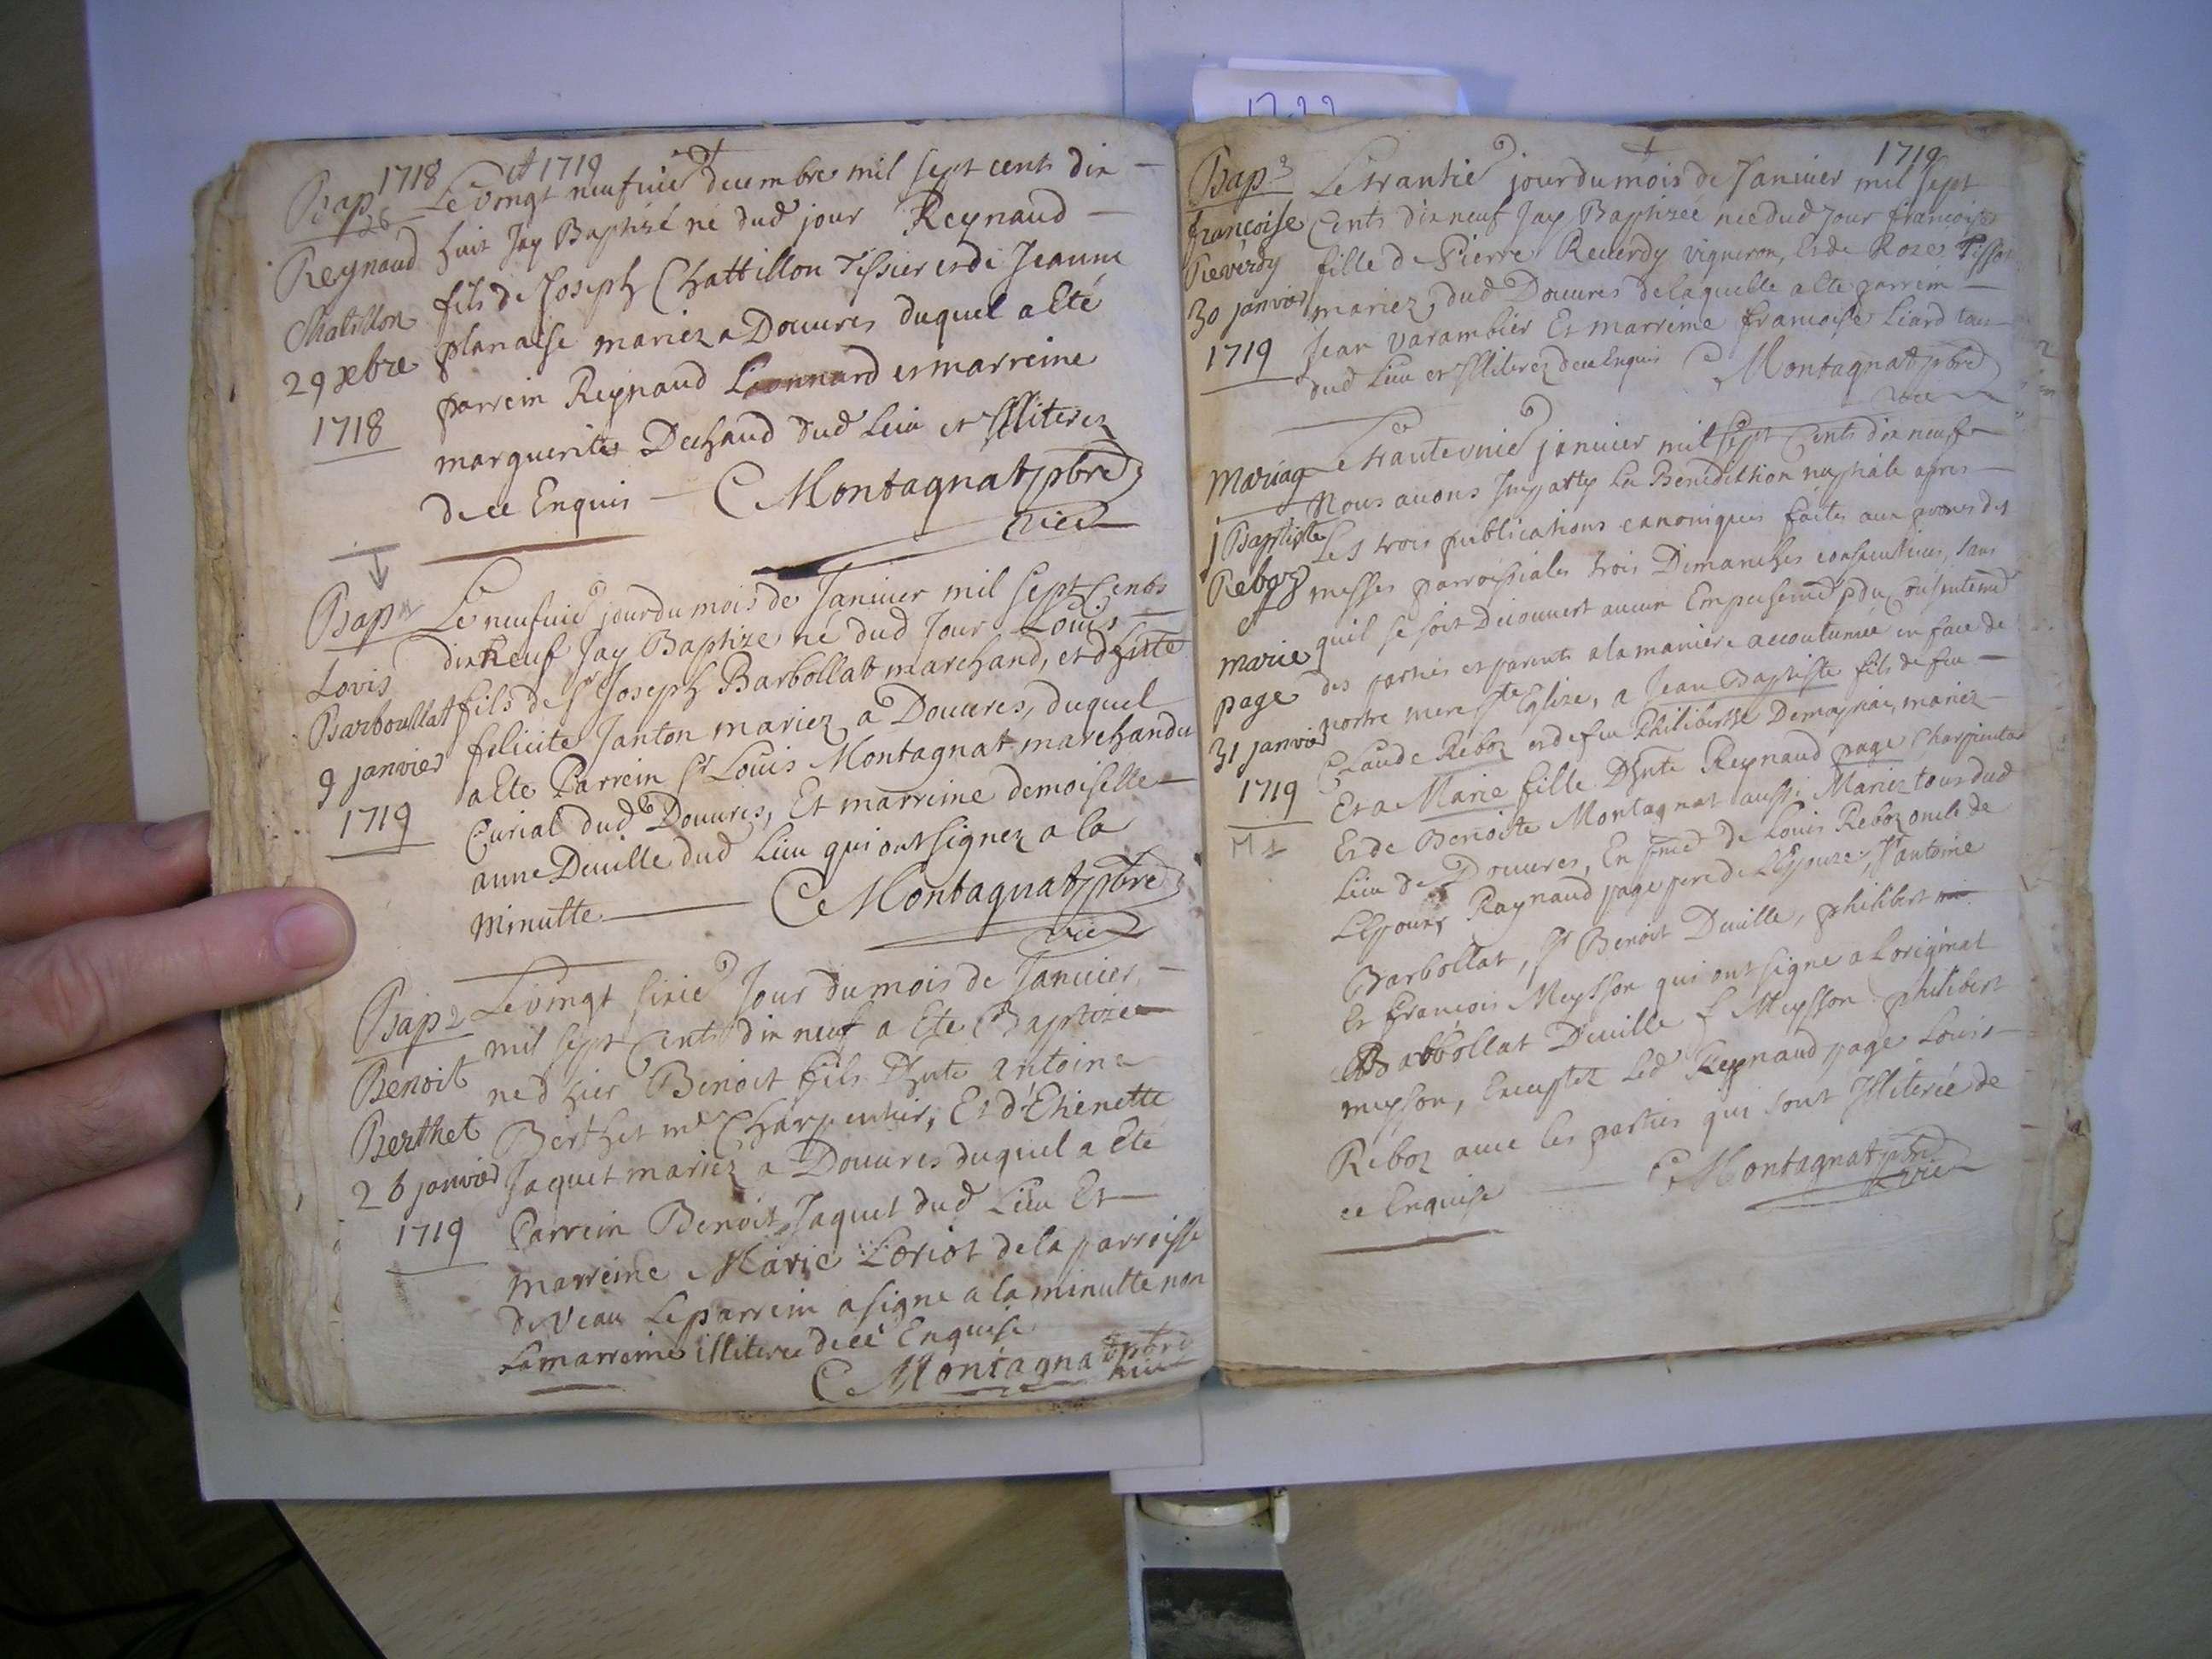 1722
1718 et 1719
Bap 26
Reynaud
Chatillon
29 xbre
1718
Le vingt neufuie decembre mil sept cents dix
huit Jay Baptisé né dud jour Reynaud
fils de Joseph Chattillon Tissier et de Jeanne
planaise mariez a Douures duquel a Eté
parrein Reynaud Leonnard et marreine
marguerite Dechaud dud Lieu et Illiterez
de ce Enquis C Montagnat pbre
vic
Bap
Lovis
Barboullat
9 janvier
1719
Le neufuie jour du mois de Januier mil sept Cents
dix neuf Jay Baptize né dud Jour Louis
fils de sr Joseph Barbollat marchand, et dhnte
felicite Janton mariez a Douures, duquel
a Ete Parrein sr Louis Montagnat marchand
Curial dud Douures, Et marreine demoiselle
anne Deuille dud Lieu qui ont signez a la
Minutte C Montagnat pbre
vic
Bap 2
Benoit
Berthet
26 janvier
1719
Le vingt sixie Jour du mois de Januier
mil sept Cents dix neuf a Ete Baptize
ne d hier Benoit fils Dhnte antoine
Berthet me Charpentier, Et d'Etienette
Jaquet mariez a Douures duquel a Eté
Parrein Benoit Jaquet dud Lieu Et
marreine Marie Loriot de la parroisse
de Veau Le parrein a signe a la minutte non
La marreine illiteree de ce Enquise
C Montagnat pbre
vic
1719
Bap 3
françoise
Reverdy
30 janvier
1719
Le trantie jour du mois de Januier mil sept
Cents dix neuf Jay Baptizee nee dud Jour françoise
fille de Pierre Reuerdy vigneron, Et de Roze Tissot
mariez, dud Douures de laquelle a Ete parrein
Jean varambier Et marreine françoise Liard tous
dud Lieu et Illiterez de ce Enquis C Montagnat pbre
vic
Mariag
j Baptiste
Reboz
marie
page
31 janvier
1719
M 1
Le trante vnie januier mil sept Cents dix neuf
Nous auons Imparty La Benediction nuptiale apres
Les trois publications canoniques faites aux prones des
messes parroissiales trois Dimanches consecutiues, sans
quil se soit Decouuert aucun Empeschemt du consentemt
des parties et parents a la maniere accoutumée en face de
nortre mere ste Eglize, a Jean Baptiste fils de feu
Claude Reboz et de feu Philiberthe Demornai, mariez
Et a Marie fille Dhnte Reynaud page Charpentier
Et de Benoite Montagnat aussi Mariez tous dud
Lieu de Douures, En pnce de Louis Reboz oncle de
L'Epoux, Raynaud page pere de L'Epouze, sr antoine
Barbollat, sr Benoit Deuille, philibert
Et François Meysson qui ont signe a Loriginal
Barbollat Deuille f Meysson philibert
meyson, Excepté Led Reynaud page Louis
Reboz auec les parties qui sont Illiterée de
ce Enquise C Montagnat pbre
vic